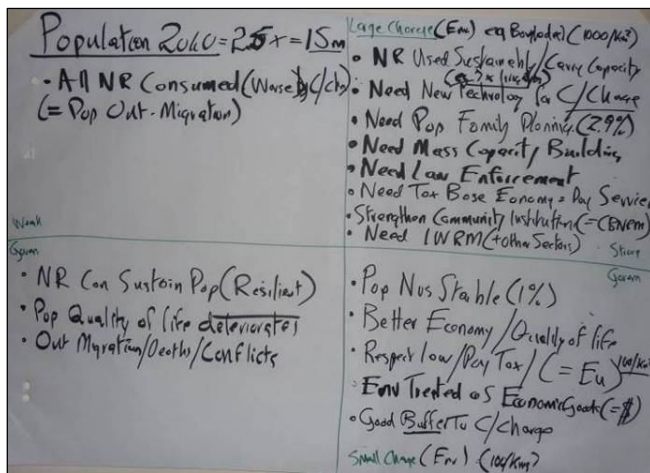 Population 2040 = 2.5x = 15m
• All NR Consumed (Worse by C/chg)
(= Pop Out-Migration)
Weak
Govern
Large Change (Env) eg Bangladesh (1000/Km²)
• NR Used Sustainably/Carry Capacity
• Need New Technology for C/Change
• Need Pop Family Planning (2.9%)
• Need Mass Capacity Building
• Need Law Enforcement
• Need Tax Base Economy = Pay Services
• Strengthen Community Institution (= CBNRM)
• Need IWRM (+ Other Sectors)
Strong
Govern
• NR Can Sustain Pop (Resilient)
• Pop Quality of life deteriorates
• Out Migration/Deaths/Conflicts
• Pop Nus Stable (1%)
• Better Economy/Quality of life
• Respect law/Pay Tax/(= Eu) 100/Km²
• Env Treated as Economic Goods (= $)
• Good Buffer To C/Change
Small Change (Env) (100/Km²)